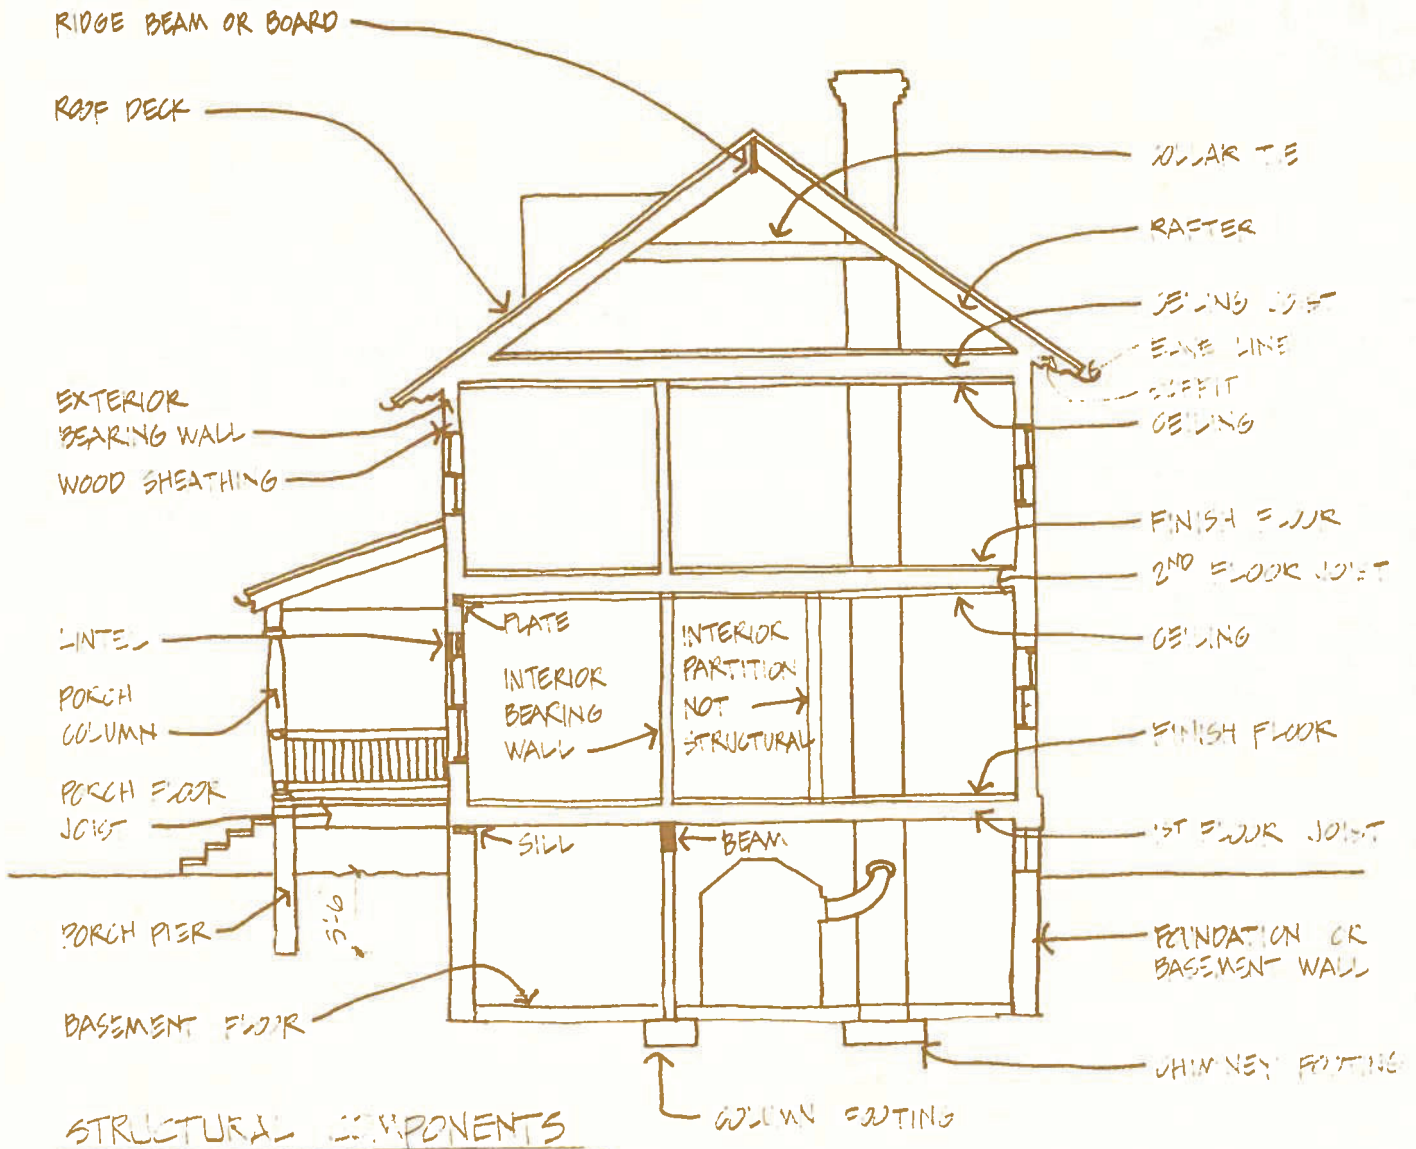 RIDGE BEAM OR BOARD
ROOF DECK
EXTERIOR
BEARING WALL
WOOD SHEATHING
LINTEL
PORCH
COLUMN
PORCH FLOOR
JOIST
PORCH PIER
BASEMENT FLOOR
PLATE
INTERIOR
BEARING
WALL
INTERIOR
PARTITION
NOT
STRUCTURAL
SILL
BEAM
COLLAR TIE
RAFTER
CEILING JOIST
EAVE LINE
SOFFIT
CEILING
FINISH FLOOR
2ND FLOOR JOIST
CEILING
FINISH FLOOR
1ST FLOOR JOIST
FOUNDATION OR
BASEMENT WALL
CHIMNEY FOOTING
COLUMN FOOTING
STRUCTURAL COMPONENTS